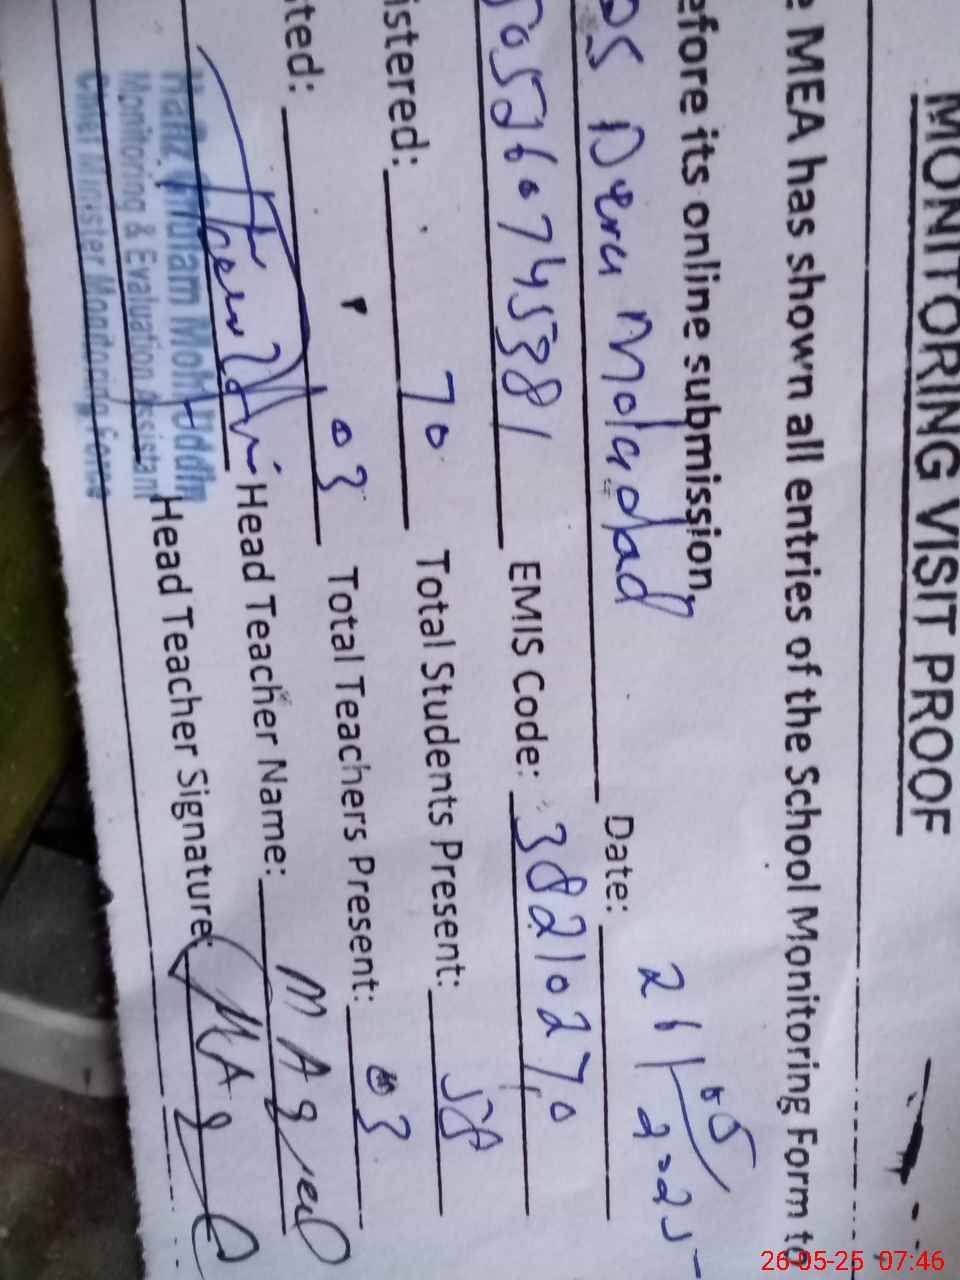 MONITORING VISIT PROOF
e MEA has shown all entries of the School Monitoring Form to
efore its online submission
PS Dera Moladad Date: 21/05/2025
EMIS Code: 38210270
istered: 70 Total Students Present: 58
ted: 03 Total Teachers Present: 03
Head Teacher Name: M Aqeel
Head Teacher Signature:
Hafiz Ghulam Mohi Uddin
Monitoring & Evaluation Assistant
Chief Minister Monitoring Force
26-05-25 07:46